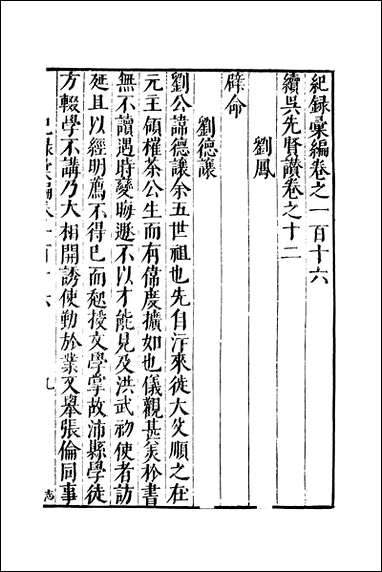 紀録彙編卷之一百十六
續吳先賢讃卷之十二
劉鳳
辟命
劉德讓
劉公諱德讓余五世祖也先自汴來徙大父順之在
元主領榷茶公生而有偉度擴如也儀觀甚美衿書
無不讀遇時變晦遯不以才能見及洪武初使者訪
延且以經明薦不得已而秘授文學掌故沛縣學徒
方輟學不講乃大相開誘使勤於業又舉張倫同事
紀録彙編卷一百十六
九
志